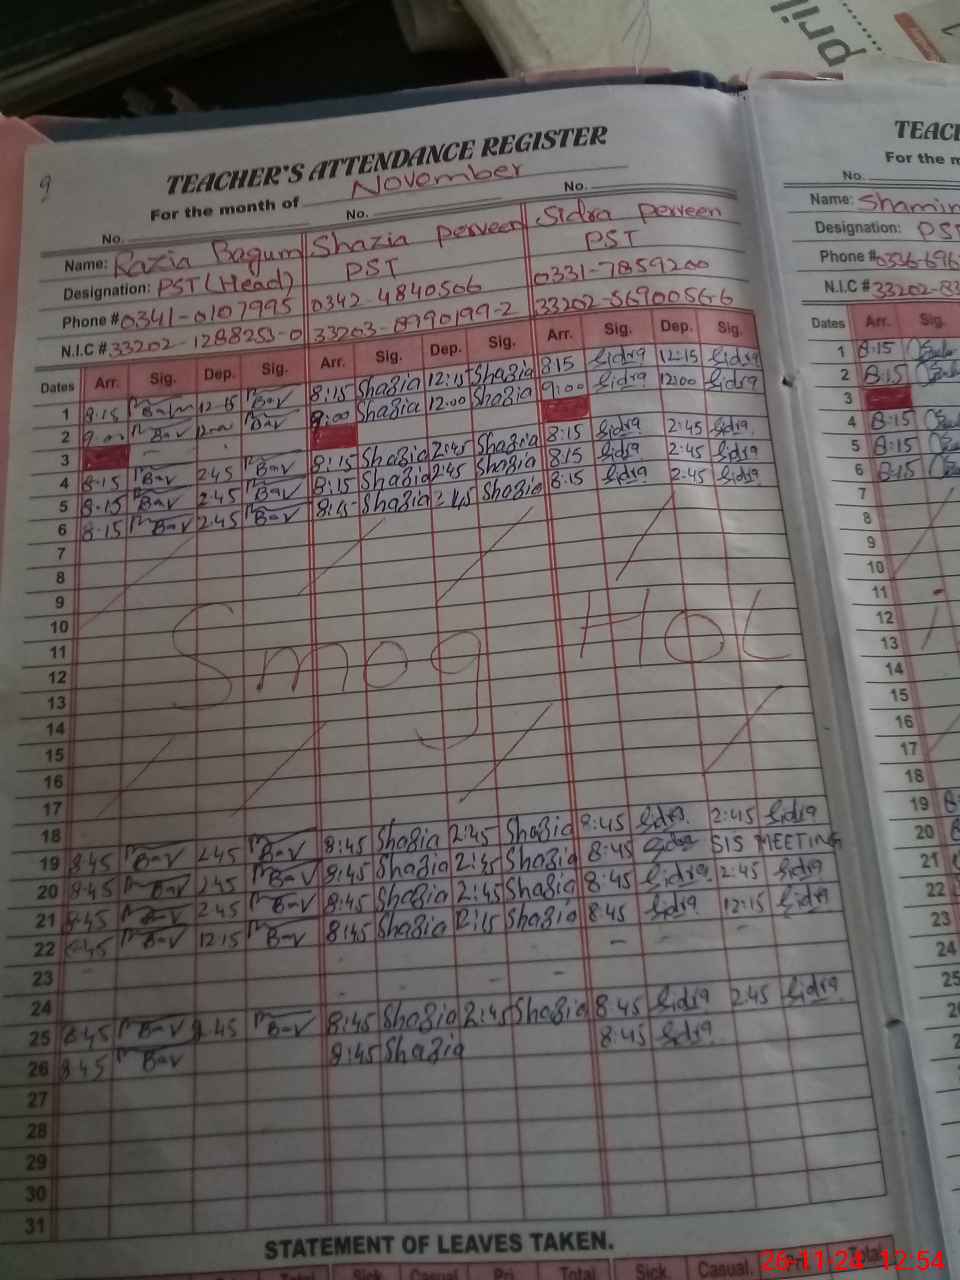 pril
9
TEACHER'S ATTENDANCE REGISTER
For the month of November
No. No. No.
Name: Razia Bagum Shazia perveen Sidra perveen
Designation: PST (Head) PST PST
Phone # 0341-0107995 0342-4840506 0331-7859200
N.I.C # 33202-1288253-0 33203-8990199-2 33202-5690056-6
Dates Arr. Sig. Dep. Sig. Arr. Sig. Dep. Sig. Arr. Sig. Dep. Sig.
1 8:15 12-15 8:15 Shazia 12:15 Shazia 8:15 Sidra 12:15 Sidra
2 9:00 12:00 9:00 Shazia 12.00 Shazia 9:00 Sidra 12:00 Sidra
3
4 8-15 2.45 8:15 Shazia 2:45 Shazia 8:15 Sidra 2:45 Sidra
5 8-15 2.45 8:15 Shazia 2:45 Shazia 8:15 Sidra 2:45 Sidra
6 8-15 2.45 8:15 Shazia 2:45 Shazia 8:15 Sidra 2:45 Sidra
7
8
9
10
11 Smog Hol
12
13
14
15
16
17
18
19 8:45 2.45 8:45 Shazia 2:45 Shazia 8:45 Sidra 2:45 Sidra
20 8:45 2.45 8:45 Shazia 2:45 Shazia 8:45 Sidra SIS MEETING
21 8:45 2.45 8:45 Shazia 2:45 Shazia 8:45 Sidra 2:45 Sidra
22 8:45 12:15 8:45 Shazia 12:15 Shazia 8:45 Sidra 12:15 Sidra
23
24
25 8:45 2.45 8:45 Shazia 2:45 Shazia 8:45 Sidra 2:45 Sidra
26 8:45 8:45 Shazia 8:45 Sidra
27
28
29
30
31
STATEMENT OF LEAVES TAKEN.
Total Sick Casual Pri. Total Sick Casual. Pri. Total
TEAC
For the m
No.
Name: Shamim
Designation: PST
Phone # 0336-696
N.I.C # 33202-83
Dates Arr. Sig.
1 8:15
2 8:15
3
4 8:15
5 8:15
6 8:15
7
8
9
10
11
12
13
14
15
16
17
18
19 8
20
21
22
23
24
25
26-11-24 12:54